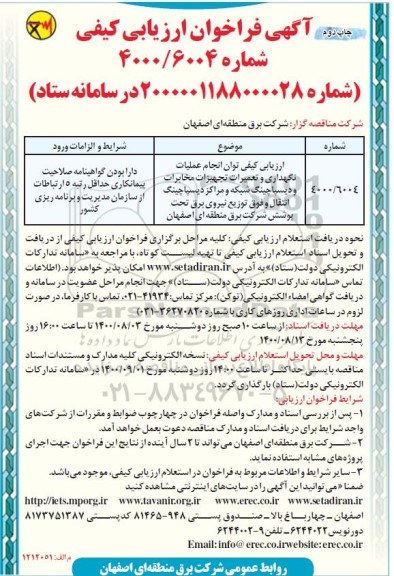 چاپ دوم
آگهی فراخوان ارزیابی کیفی
شماره ۴۰۰۰/۶۰۰۴
(شماره ۲۰۰۰۰۰۱۱۸۸۰۰۰۰۲۸ در سامانه ستاد)
شرکت مناقصه گزار: شرکت برق منطقه‌ای اصفهان
شماره موضوع شرایط و الزامات ورود
۴۰۰۰/۶۰۰۴
ارزیابی کیفی توان انجام عملیات
نگهداری و تعمیرات تجهیزات مخابرات
و دیسپاچینگ شبکه و مراکز دیسپاچینگ
انتقال و فوق توزیع نیروی برق تحت
پوشش شرکت برق منطقه ای اصفهان
دارا بودن گواهینامه صلاحیت
پیمانکاری حداقل رتبه ۵ ارتباطات
از سازمان مدیریت و برنامه ریزی
کشور
نحوه دریافت استعلام ارزیابی کیفی: کلیه مراحل برگزاری فراخوان ارزیابی کیفی از دریافت
و تحویل اسناد استعلام ارزیابی کیفی تا تهیه لیست کوتاه، با مراجعه به «سامانه تدارکات
الکترونیکی دولت(ستاد)» به آدرس www.setadiran.ir امکان پذیر خواهد بود. (اطلاعات
تماس «سامانه تدارکات الکترونیکی دولت (ستاد)» جهت انجام مراحل عضویت در سامانه و
دریافت گواهی امضاء الکترونیکی (توکن): مرکز تماس: ۴۱۹۳۴-۰۲۱ تماس با کارفرما، در صورت
لزوم در ساعات اداری روزهای کاری با شماره ۳۶۲۷۰۸۲۰-۰۳۱)
مهلت دریافت اسناد: از ساعت ۱۰ صبح روز دوشنبه مورخ ۱۴۰۰/۰۸/۰۳ تا ساعت ۱۶:۰۰ روز
پنجشنبه مورخ ۱۴۰۰/۰۸/۱۳
مهلت و محل تحویل استعلام ارزیابی کیفی: نسخه الکترونیکی کلیه مدارک و مستندات اسناد
مناقصه بایستی حداکثر تا ساعت ۱۴:۰۰ روز دوشنبه مورخ ۱۴۰۰/۰۹/۰۱ در «سامانه تدارکات
الکترونیکی دولت(ستاد) بارگذاری گردد.
شرایط فراخوان ارزیابی
۱- پس از بررسی اسناد و مدارک واصله فراخوان در چهارچوب ضوابط و مقررات از شرکت‌های
واجد شرایط برای دریافت اسناد و مدارک مناقصه دعوت بعمل خواهد آمد.
۲- شرکت برق منطقه‌ای اصفهان می‌تواند تا ۲ سال آینده از نتایج این فراخوان جهت اجرای
پروژه‌های مشابه استفاده نماید.
۳- سایر شرایط و اطلاعات مربوط به فراخوان در استعلام ارزیابی کیفی، موجود می‌باشد.
ضمنا" می‌توانید این آگهی را در سایت‌های اینترنتی مشاهده کنید
http://iets.mporg.ir www.tavanir.org.ir www.erec.co.ir www.setadiran.ir
اصفهان - چهارباغ بالا - صندوق پستی ۹۴۸-۸۱۴۶۵ کدپستی ۸۱۷۳۷۵۱۳۸۷
دورنویس ۶۲۴۴۰۲۲ - تلفن ۹-۶۲۴۴۰۰۲
Email: info@erec.co.ir website: erec.co.ir
م الف: ۱۲۱۲۰۵۱
روابط عمومی شرکت برق منطقه‌ای اصفهان
۰۲۱-۸۸۳۴۹۶۷۰